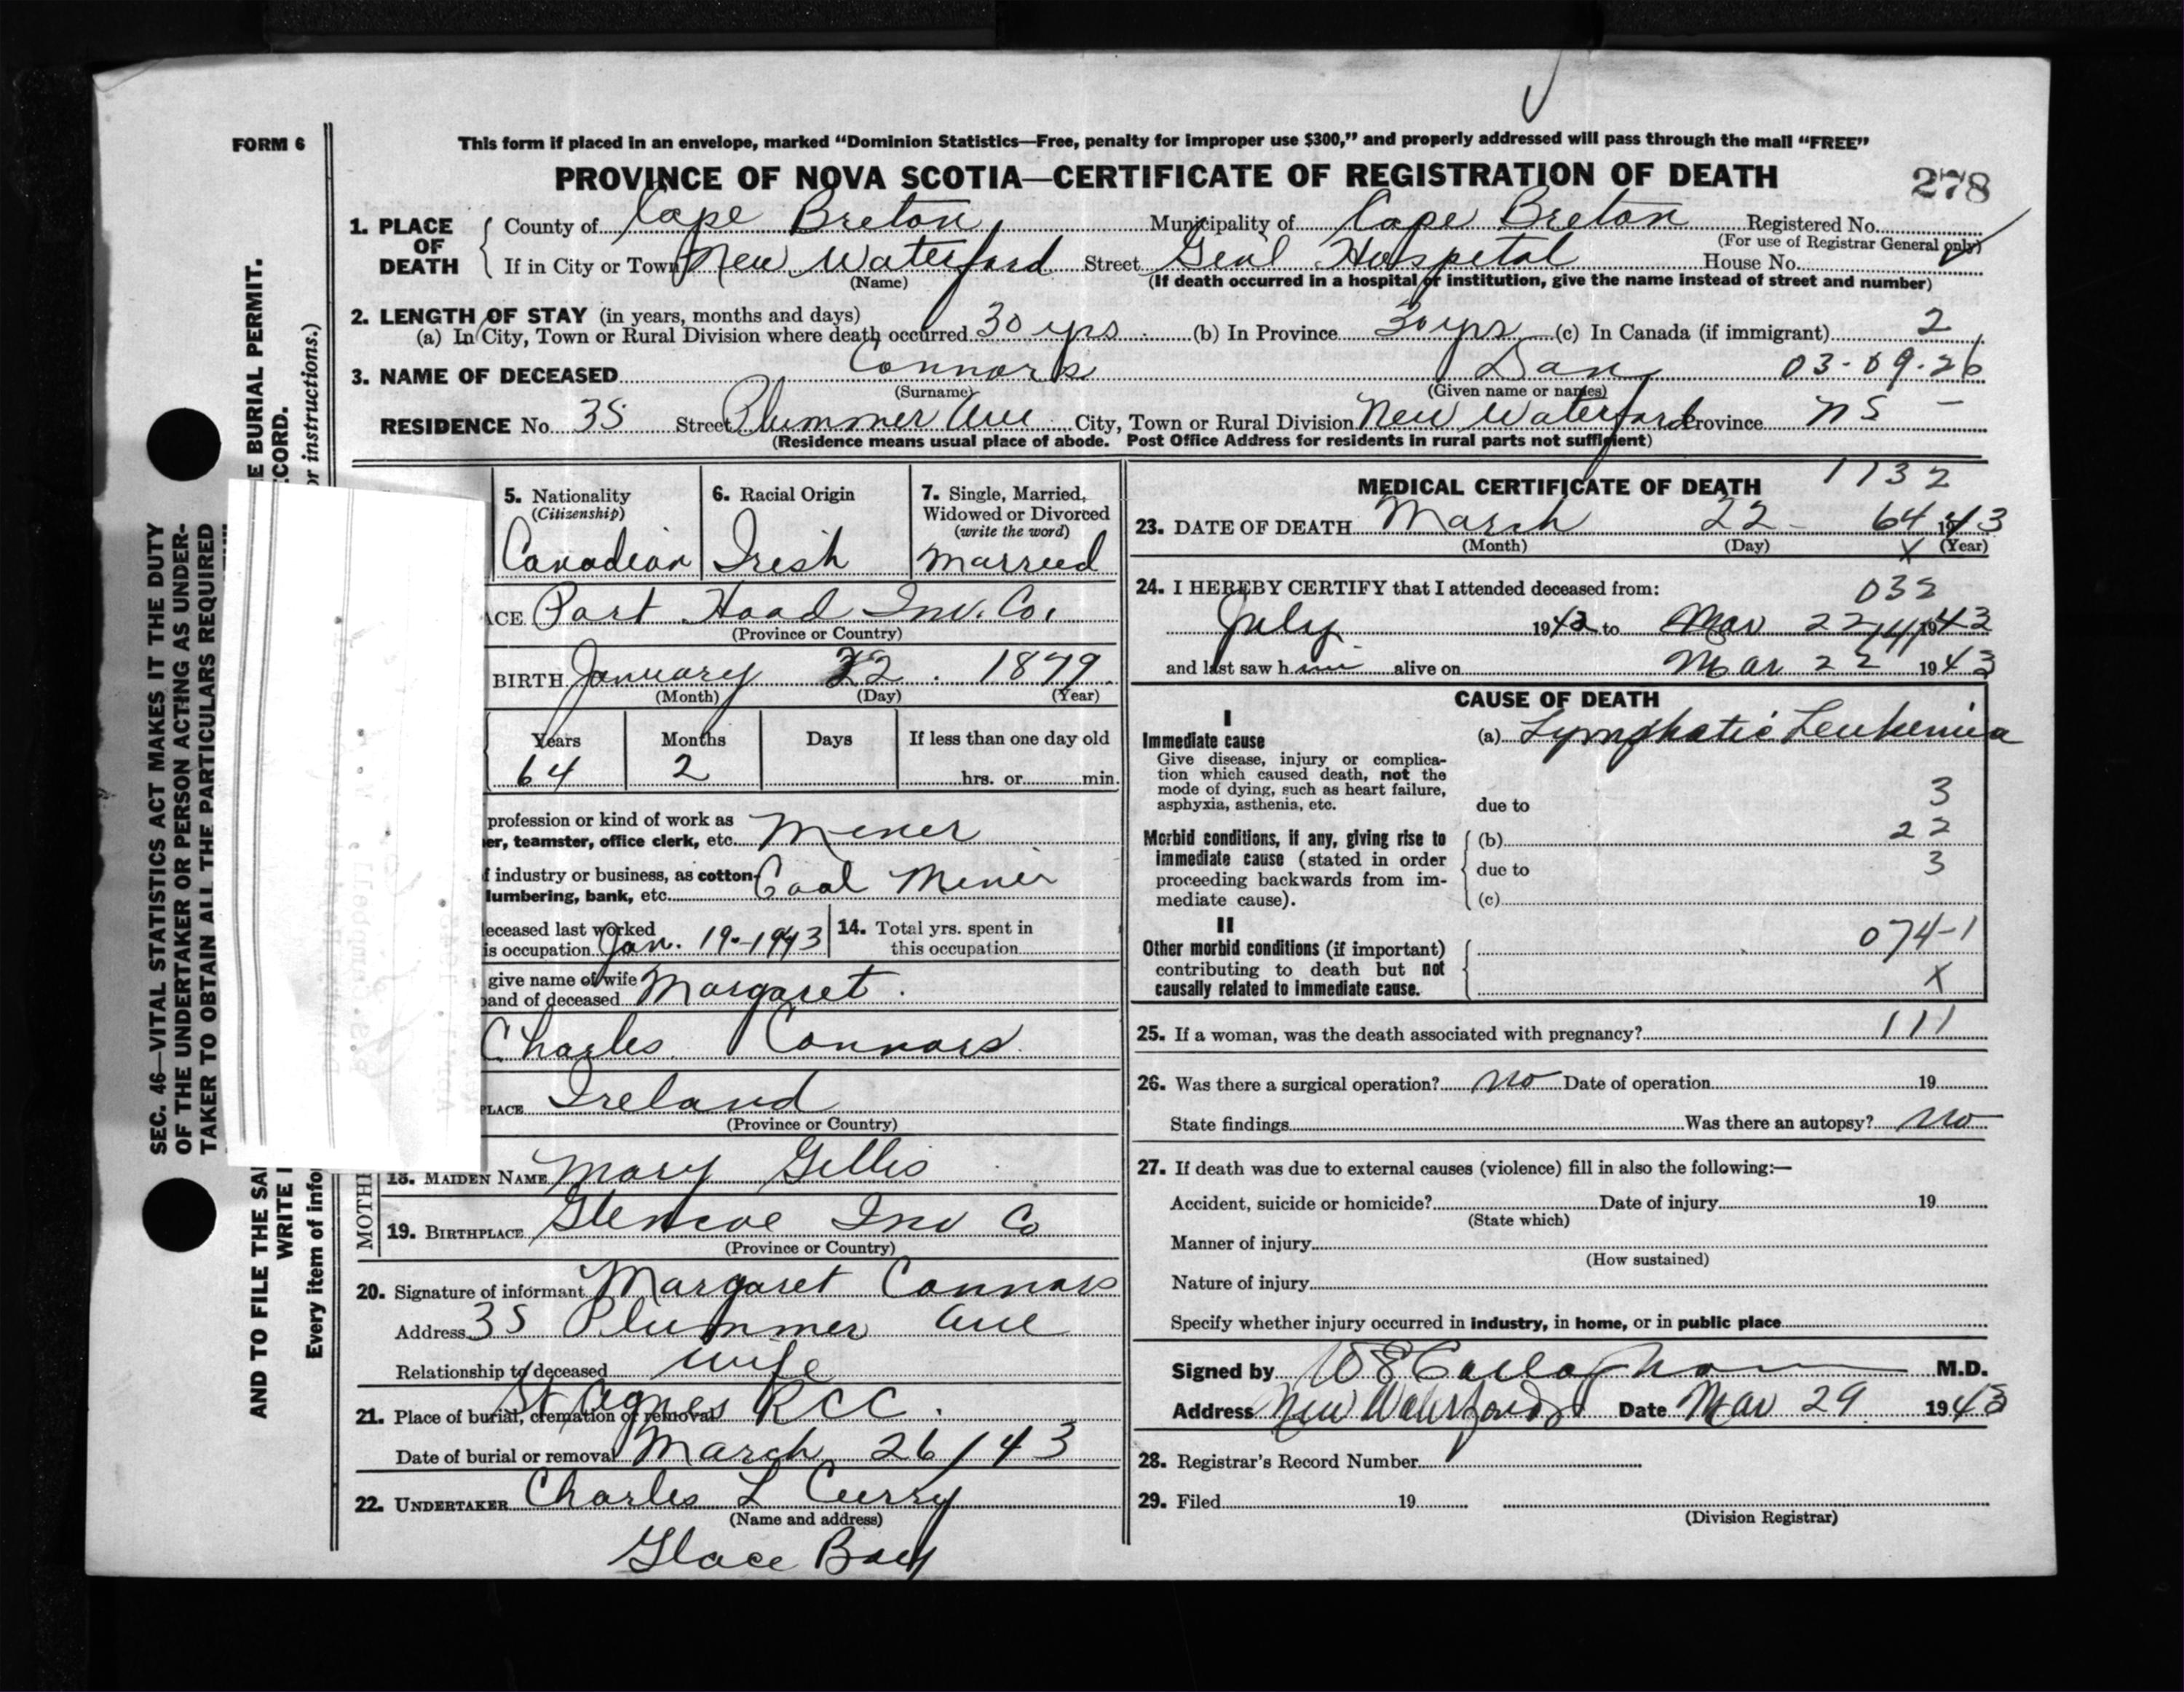 FORM 6
This form if placed in an envelope, marked “Dominion Statistics—Free, penalty for improper use $300,” and properly addressed will pass through the mail “FREE”
PROVINCE OF NOVA SCOTIA—CERTIFICATE OF REGISTRATION OF DEATH
278
1. PLACE OF DEATH County of Cape Breton Municipality of Cape Breton Registered No.
(For use of Registrar General only)
If in City or Town New Waterford Street Genl Hospital House No.
(Name) (If death occurred in a hospital or institution, give the name instead of street and number)
2. LENGTH OF STAY (in years, months and days)
(a) In City, Town or Rural Division where death occurred 30 yrs (b) In Province 30 yrs (c) In Canada (if immigrant) 2
3. NAME OF DECEASED Connors Dan 03-09-26
(Surname) (Given name or names)
RESIDENCE No. 35 Street Plummer Ave City, Town or Rural Division New Waterford Province NS -
(Residence means usual place of abode. Post Office Address for residents in rural parts not sufficient)
5. Nationality (Citizenship) Canadian
6. Racial Origin Irish
7. Single, Married, Widowed or Divorced (write the word) Married
ACE Port Hood Inv. Co.
(Province or Country)
BIRTH January 22 1879
(Month) (Day) (Year)
Years Months Days If less than one day old
64 2 hrs. or min.
profession or kind of work as
er, teamster, office clerk, etc. Miner
f industry or business, as cotton-
lumbering, bank, etc. Coal Miner
eceased last worked
is occupation Jan. 19-1943
14. Total yrs. spent in
this occupation
give name of wife
band of deceased Margaret.
Charles Connors.
PLACE Ireland
(Province or Country)
MOTHE
18. MAIDEN NAME Mary Gillis
19. BIRTHPLACE Glencoe Inv Co
(Province or Country)
20. Signature of informant Margaret Connors
Address 35 Plummer Ave
Relationship to deceased wife
21. Place of burial, cremation or removal St Agnes RCC.
Date of burial or removal March 26/43
22. UNDERTAKER Charles L Curry
(Name and address)
Glace Bay
MEDICAL CERTIFICATE OF DEATH 1132
23. DATE OF DEATH March 22- 64 1943
(Month) (Day) X (Year)
24. I HEREBY CERTIFY that I attended deceased from: 032
July 1942 to Mar 22 1943
and last saw h im alive on Mar 22 1943
CAUSE OF DEATH
I
Immediate cause
Give disease, injury or complica-
tion which caused death, not the
mode of dying, such as heart failure,
asphyxia, asthenia, etc.
(a) Lymphatic Leukemia
3
due to
Morbid conditions, if any, giving rise to
immediate cause (stated in order
proceeding backwards from im-
mediate cause).
(b) 22
due to 3
(c)
II
Other morbid conditions (if important)
contributing to death but not
causally related to immediate cause.
074-1
X
25. If a woman, was the death associated with pregnancy? 111
26. Was there a surgical operation? no Date of operation 19
State findings Was there an autopsy? no
27. If death was due to external causes (violence) fill in also the following:—
Accident, suicide or homicide? Date of injury 19
(State which)
Manner of injury
(How sustained)
Nature of injury
Specify whether injury occurred in industry, in home, or in public place
Signed by M.D.
Address New Waterford Date Mar 29 1943
28. Registrar's Record Number
29. Filed 19
(Division Registrar)
SEC. 46—VITAL STATISTICS ACT MAKES IT THE DUTY
OF THE UNDERTAKER OR PERSON ACTING AS UNDER-
TAKER TO OBTAIN ALL THE PARTICULARS REQUIRED
AND TO FILE THE SA
E BURIAL PERMIT.
WRITE
ECORD.
Every item of info
or instructions.)